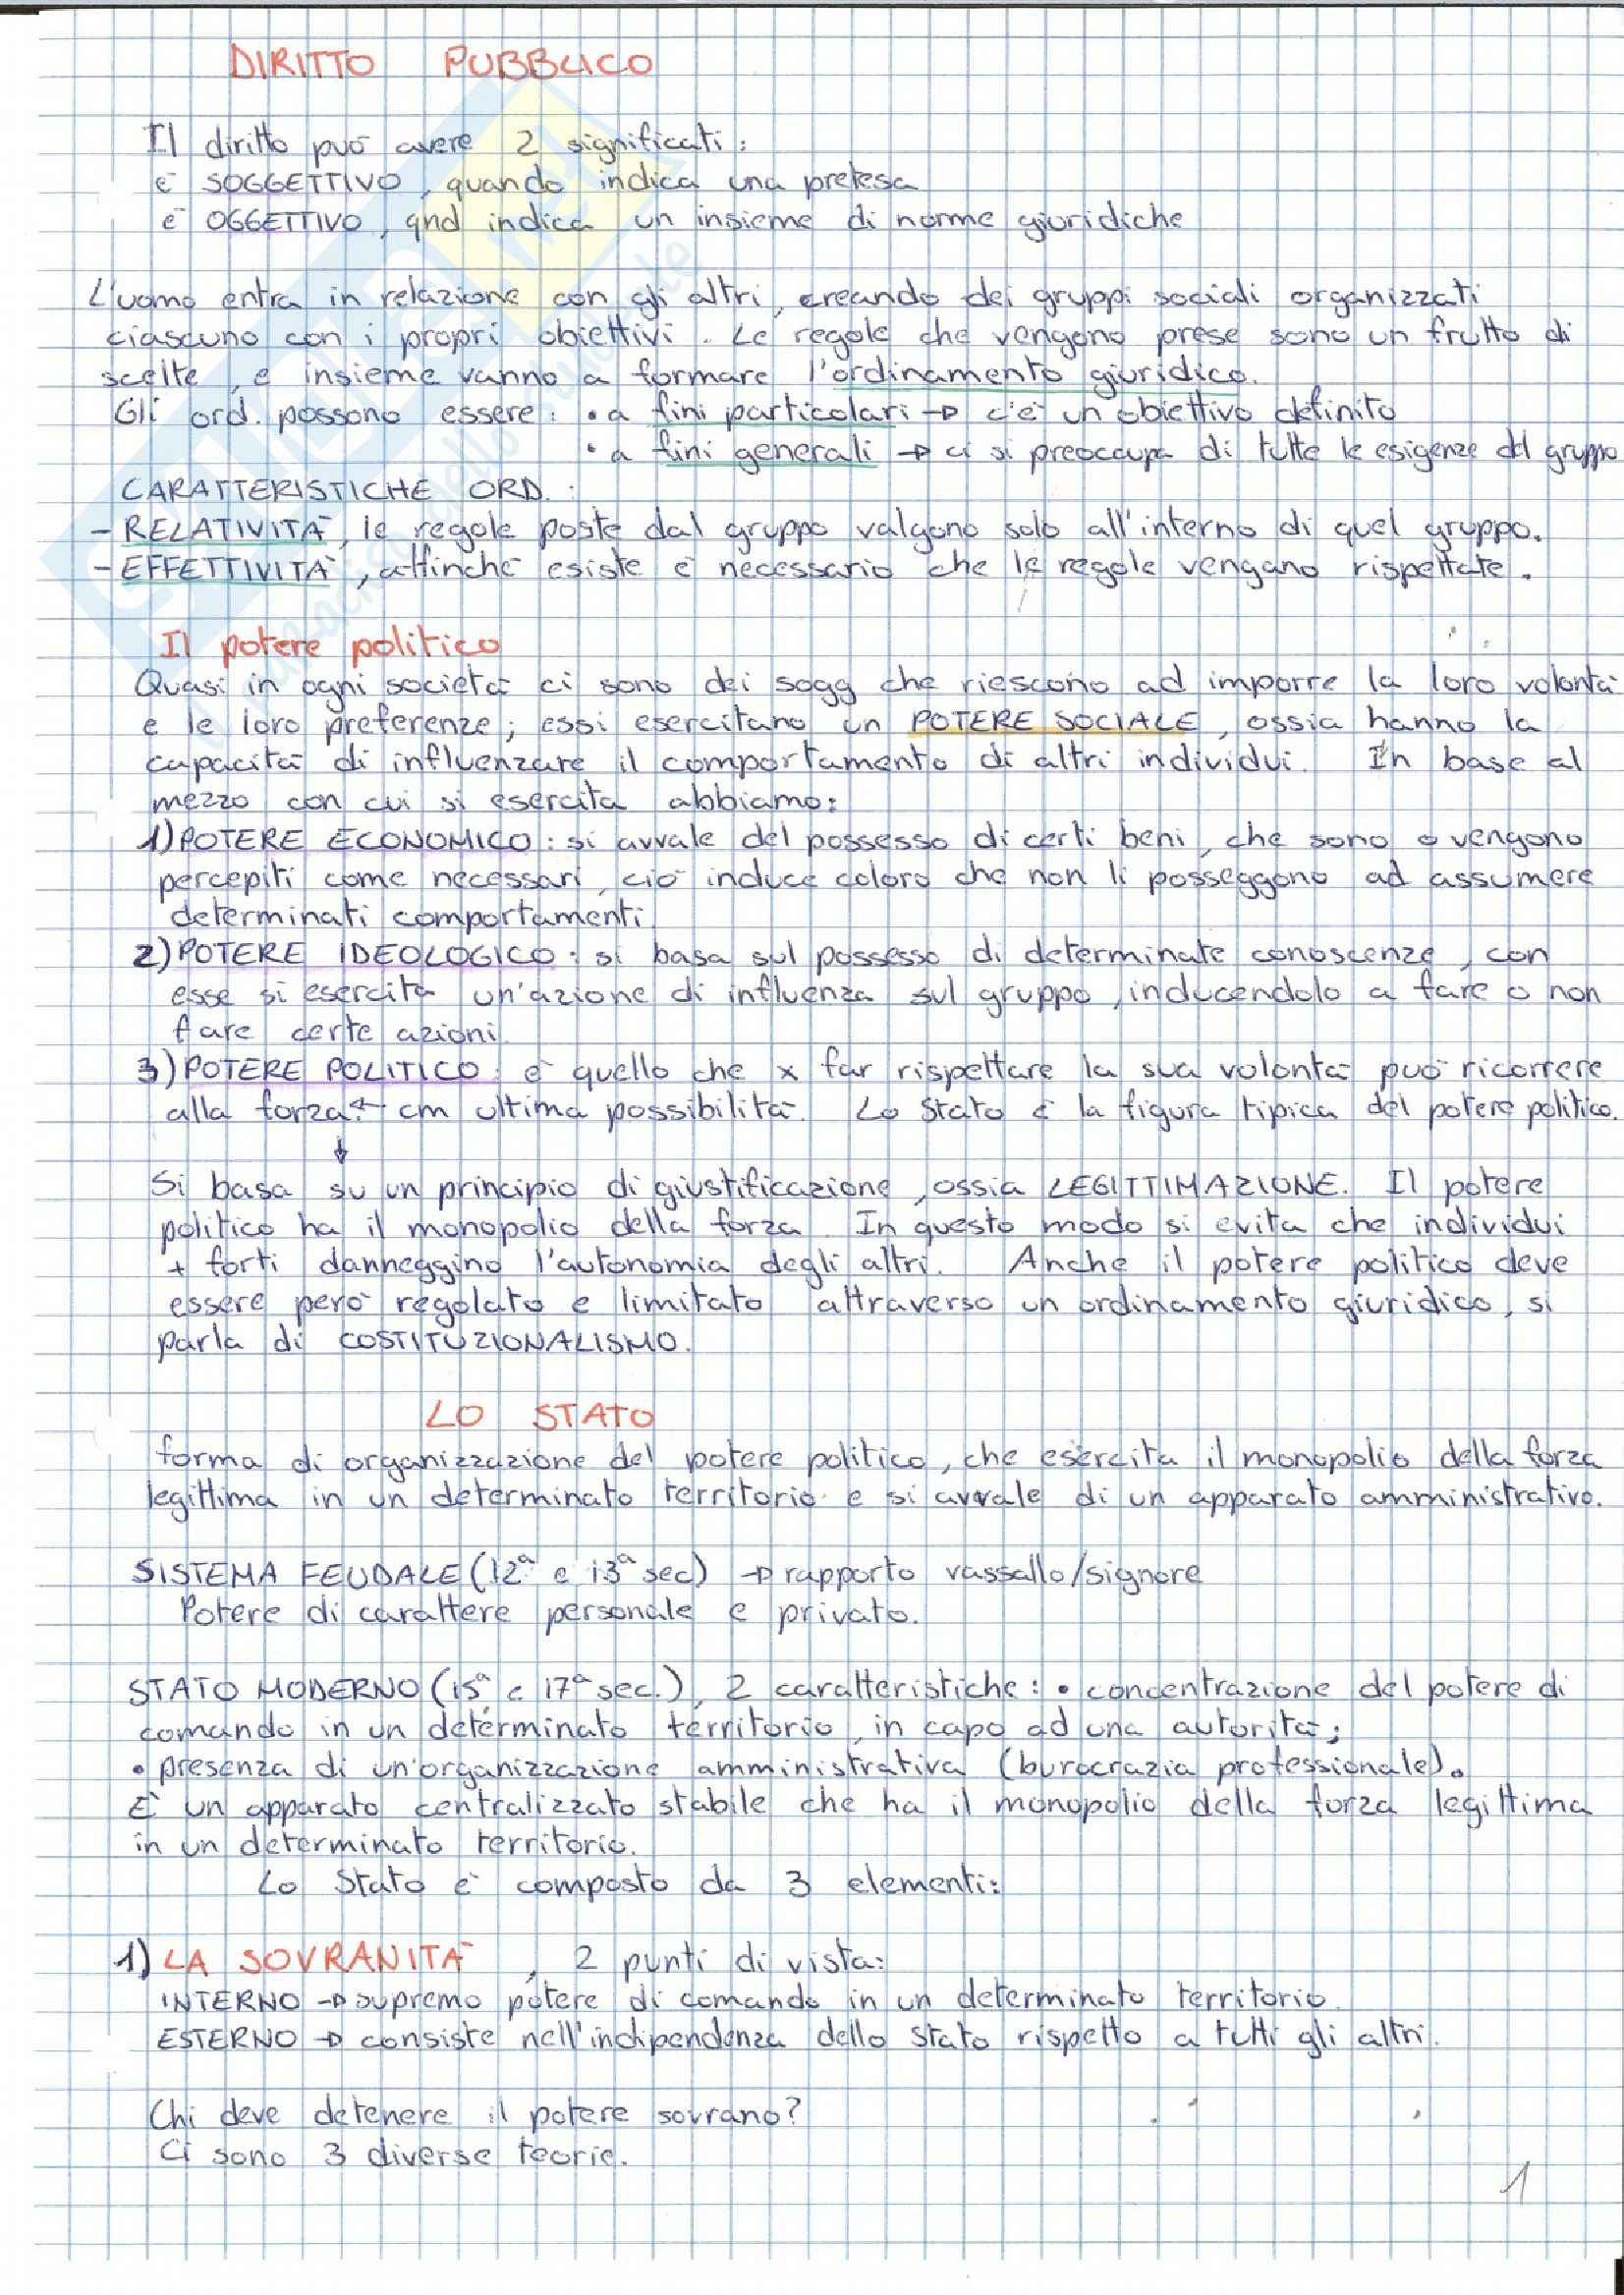 DIRITTO PUBBLICO
Il diritto può avere 2 significati:
è SOGGETTIVO, quando indica una pretesa
è OGGETTIVO, qnd indica un insieme di norme giuridiche
L'uomo entra in relazione con gli altri, creando dei gruppi sociali organizzati
ciascuno con i propri obiettivi. Le regole che vengono prese sono un frutto di
scelte, e insieme vanno a formare l'ordinamento giuridico.
Gli ord. possono essere: • a fini particolari → c'è un obiettivo definito
• a fini generali → ci si preoccupa di tutte le esigenze del gruppo
CARATTERISTICHE ORD.:
- RELATIVITÀ, le regole poste dal gruppo valgono solo all'interno di quel gruppo.
- EFFETTIVITÀ, affinché esiste è necessario che le regole vengano rispettate.
Il potere politico
Quasi in ogni società ci sono dei sogg che riescono ad imporre la loro volontà
e le loro preferenze; essi esercitano un POTERE SOCIALE, ossia hanno la
capacità di influenzare il comportamento di altri individui. In base al
mezzo con cui si esercita abbiamo:
1) POTERE ECONOMICO: si avvale del possesso di certi beni, che sono o vengono
percepiti come necessari, ciò induce coloro che non li posseggono ad assumere
determinati comportamenti.
2) POTERE IDEOLOGICO: si basa sul possesso di determinate conoscenze, con
esse si esercita un'azione di influenza sul gruppo, inducendolo a fare o non
fare certe azioni.
3) POTERE POLITICO: è quello che x far rispettare la sua volontà può ricorrere
alla forza ← cm ultima possibilità. Lo Stato è la figura tipica del potere politico.
↓
Si basa su un principio di giustificazione, ossia LEGITTIMAZIONE. Il potere
politico ha il monopolio della forza. In questo modo si evita che individui
+ forti danneggino l'autonomia degli altri. Anche il potere politico deve
essere però regolato e limitato attraverso un ordinamento giuridico, si
parla di COSTITUZIONALISMO.
LO STATO
forma di organizzazione del potere politico, che esercita il monopolio della forza
legittima in un determinato territorio e si avvale di un apparato amministrativo.
SISTEMA FEUDALE (12ª e 13ª sec) → rapporto vassallo/signore
Potere di carattere personale e privato.
STATO MODERNO (15ª e 17ª sec.), 2 caratteristiche: • concentrazione del potere di
comando in un determinato territorio in capo ad una autorità;
• presenza di un'organizzazione amministrativa (burocrazia professionale).
È un apparato centralizzato stabile che ha il monopolio della forza legittima
in un determinato territorio.
Lo Stato è composto da 3 elementi:
1) LA SOVRANITÀ, 2 punti di vista:
INTERNO → supremo potere di comando in un determinato territorio.
ESTERNO → consiste nell'indipendenza dello Stato rispetto a tutti gli altri.
Chi deve detenere il potere sovrano?
Ci sono 3 diverse teorie.
1